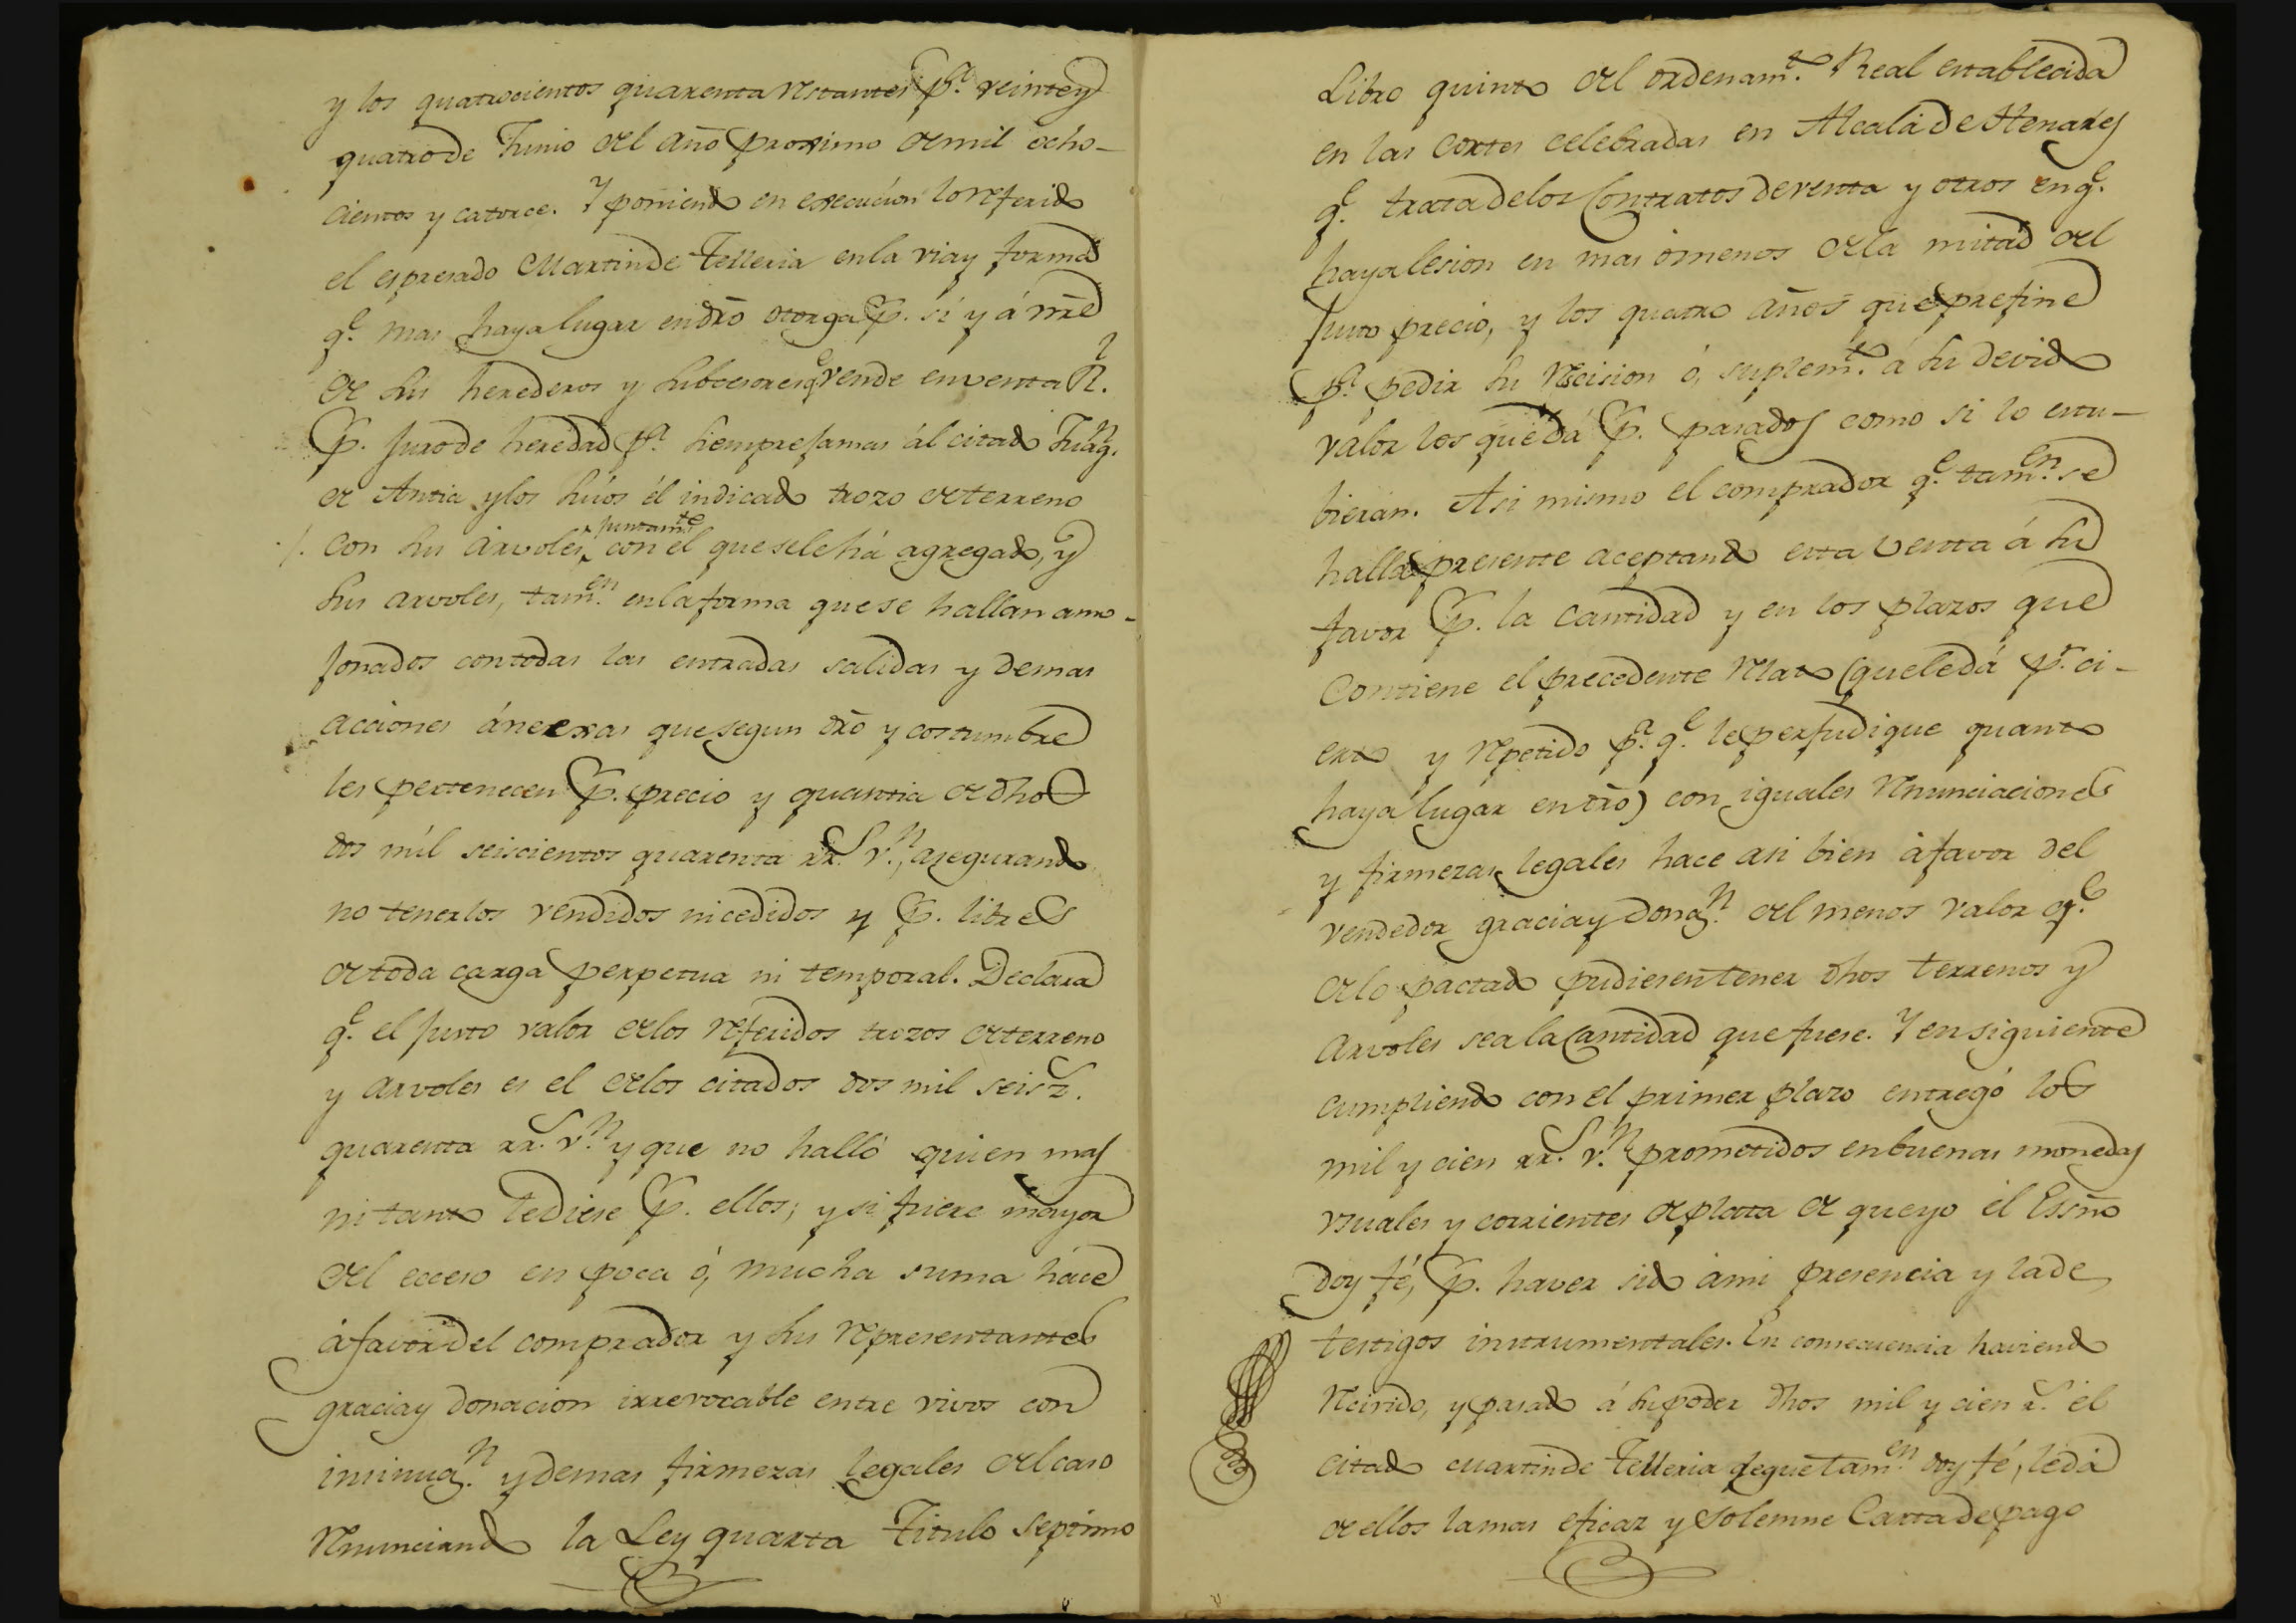 y los quatrocientos quarenta restantes pª. veinte y
quatro de Junio del año proximo de mil ocho-
cientos y catorce. Y poniendo en execucion lo referido
el espresado Martin de Telleria en la via y forma
qᵉ. mas haya lugar en dr̃o otorga p. sí y á nr̃e
de sus herederos y subcesores qᵉ vende en venta Rˡ.
p. juro de heredad pª. siempre jamas ál citado Juaqⁿ.
de Antia y los suios él indicado trozo de terreno
/. con sus arvoles, juntamᵗᵉ con él que se le há agregado, y
sus arvoles, tamᵉⁿ. en la forma que se hallan amo-
jonados con todas las entradas salidas y demas
acciones ánexas que segun dr̃o y costumbre
les pertenecen p. precio y quantia de dhos
dos mil seiscientos quarenta rrˢ. vⁿ., asegurando
no tenerlos vendidos ni cedidos y p. libres
de toda carga perpetua ni temporal. Declara
qᵉ. el justo valor de los referidos trozos de terreno
y arvoles es el de los citados dos mil seisᶻ.
quarenta rrˢ. vⁿ. y que no halló quien mas
ni tanto le diese p. ellos; y si fuere mayor
del ecceso en poca ó, mucha suma háce
á favor del comprador y sus representantes
gracia y donacion irrevocable entre vivos con
insinuaⁿ. y demas firmezas legales del caso
renunciando la Ley quarta Titulo septimo
Libro quinto del ordenamᵗᵒ. Real establecida
en las cortes celebradas en Alcalá de Henares
qᵉ. trata de los Contratos de venta y otros en qᵉ.
haya lesion en mas ó menos de la mitad del
justo precio, y los quatro años que prefine
pª. pedir su rescision ó, suplemᵗᵒ. á su devido
valor los que dá p. pasados como si lo estu-
bieran. Asi mismo el comprador qᵉ. tamᵉⁿ. se
halla presente aceptando esta venta á su
favor p. la cantidad y en los plazos que
contiene el precedente relato (que le dá pʳ. ci-
erto y repetido pª. qᵉ. le perjudique quanto
haya lugar en dr̃o) con iguales renunciaciones
y firmezas legales hace asi bien á favor del
vendedor gracia y donaⁿ. del menos valor qᵉ.
de lo pactado pudiesen tener dhos terrenos y
arvoles sea la Cantidad que fuese. Y en siguiente
cumpliendo con el primer plazo entregó los
mil y cien rrˢ. vⁿ. prometidos en buenas monedas
usuales y corrientes de plata de que yo él Essño
doy fé, p. haver sido á mi presencia y la de
testigos instrumentales. En consecuencia haviendo
recivido, y pasado á su poder dhos mil y cien rˢ. él
citado Martin de Telleria de que tamᵉⁿ. doy fé, le dá
de ellos la mas eficaz y solemne Carta de pago